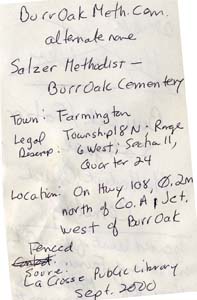 Burr Oak Meth. Cem.
alternate name
Salzer Methodist –
Burr Oak Cementery
Town: Farmington
Legal Township 18 N; Range
Descrip: 6 West; Section 11,
Quarter 24
Location: On Hwy 108, 0.2m
north of Co. A; Jct.
west of Burr Oak
Fenced
Source:
La Crosse Public Library
Sept. 2000